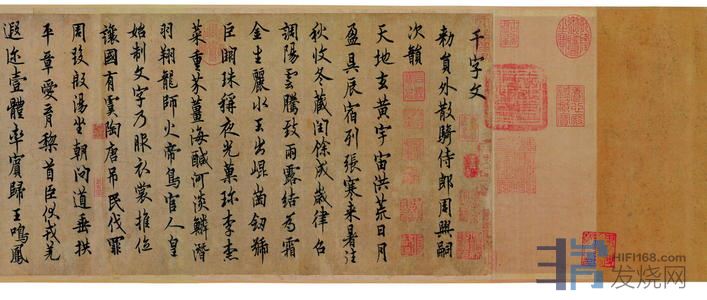 千字文
勑員外散騎侍郎周興嗣
次韻
天地玄黃宇宙洪荒日月
盈昃辰宿列張寒来暑往
秋收冬藏閏餘成歲律召
調陽雲騰致雨露結為霜
金生麗水玉出崐崗劒號
巨闕珠稱夜光菓珎李柰
菜重芥薑海醎河淡鱗潛
羽翔龍師火帝鳥官人皇
始制文字乃服衣裳推位
讓國有虞陶唐吊民伐罪
周發殷湯坐朝問道垂拱
平章愛育黎首臣伏戎羌
遐迩壹體率賓歸王鳴鳳
HIFI168.com
发烧网